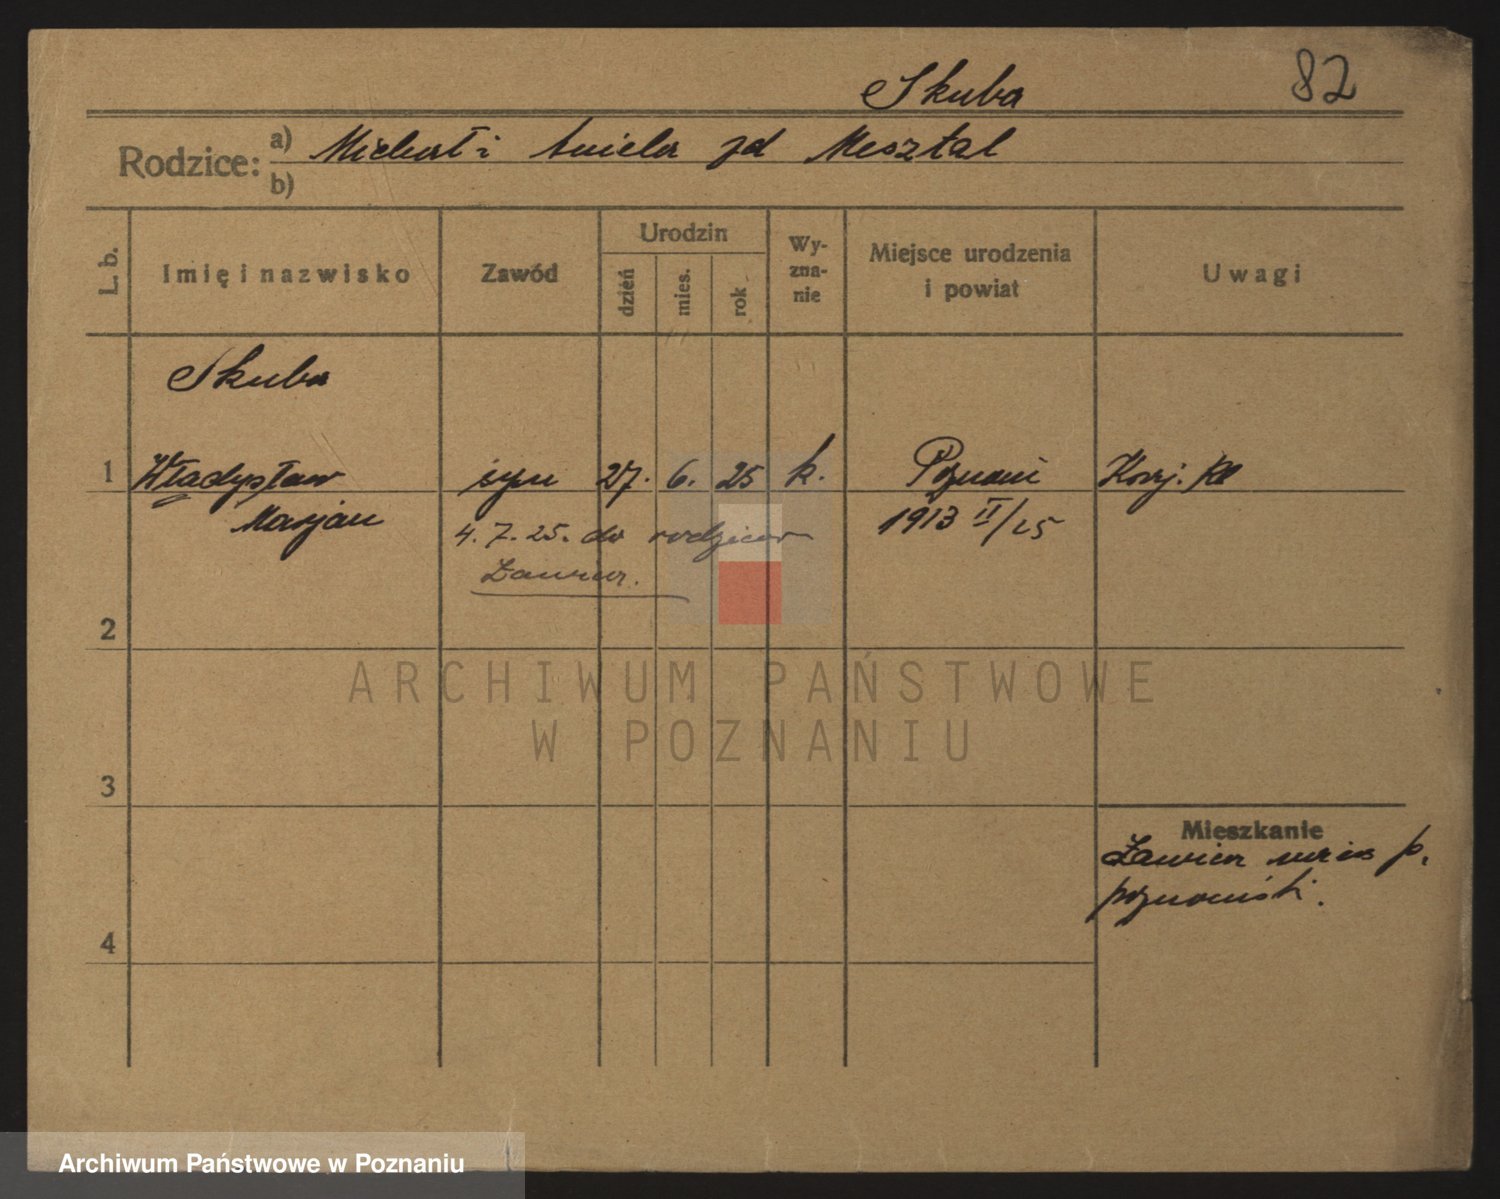 Skuba
82
Rodzice:
a) Michał i Aniela zd Mesztal
b)
L. b.
Imię i nazwisko
Zawód
Urodzin
dzień
mies.
rok
Wy-
zna-
nie
Miejsce urodzenia
i powiat
Uwagi
Skuba
1 Władysław syn 27. 6. 25 k. Poznań
Marjan
1913 II/25
4. 7. 25. do rodziców
2
ARCHIWUM PAŃSTWOWE
W POZNANIU
3
Mieszkanie
p.
poznański.
4
Archiwum Państwowe w Poznaniu